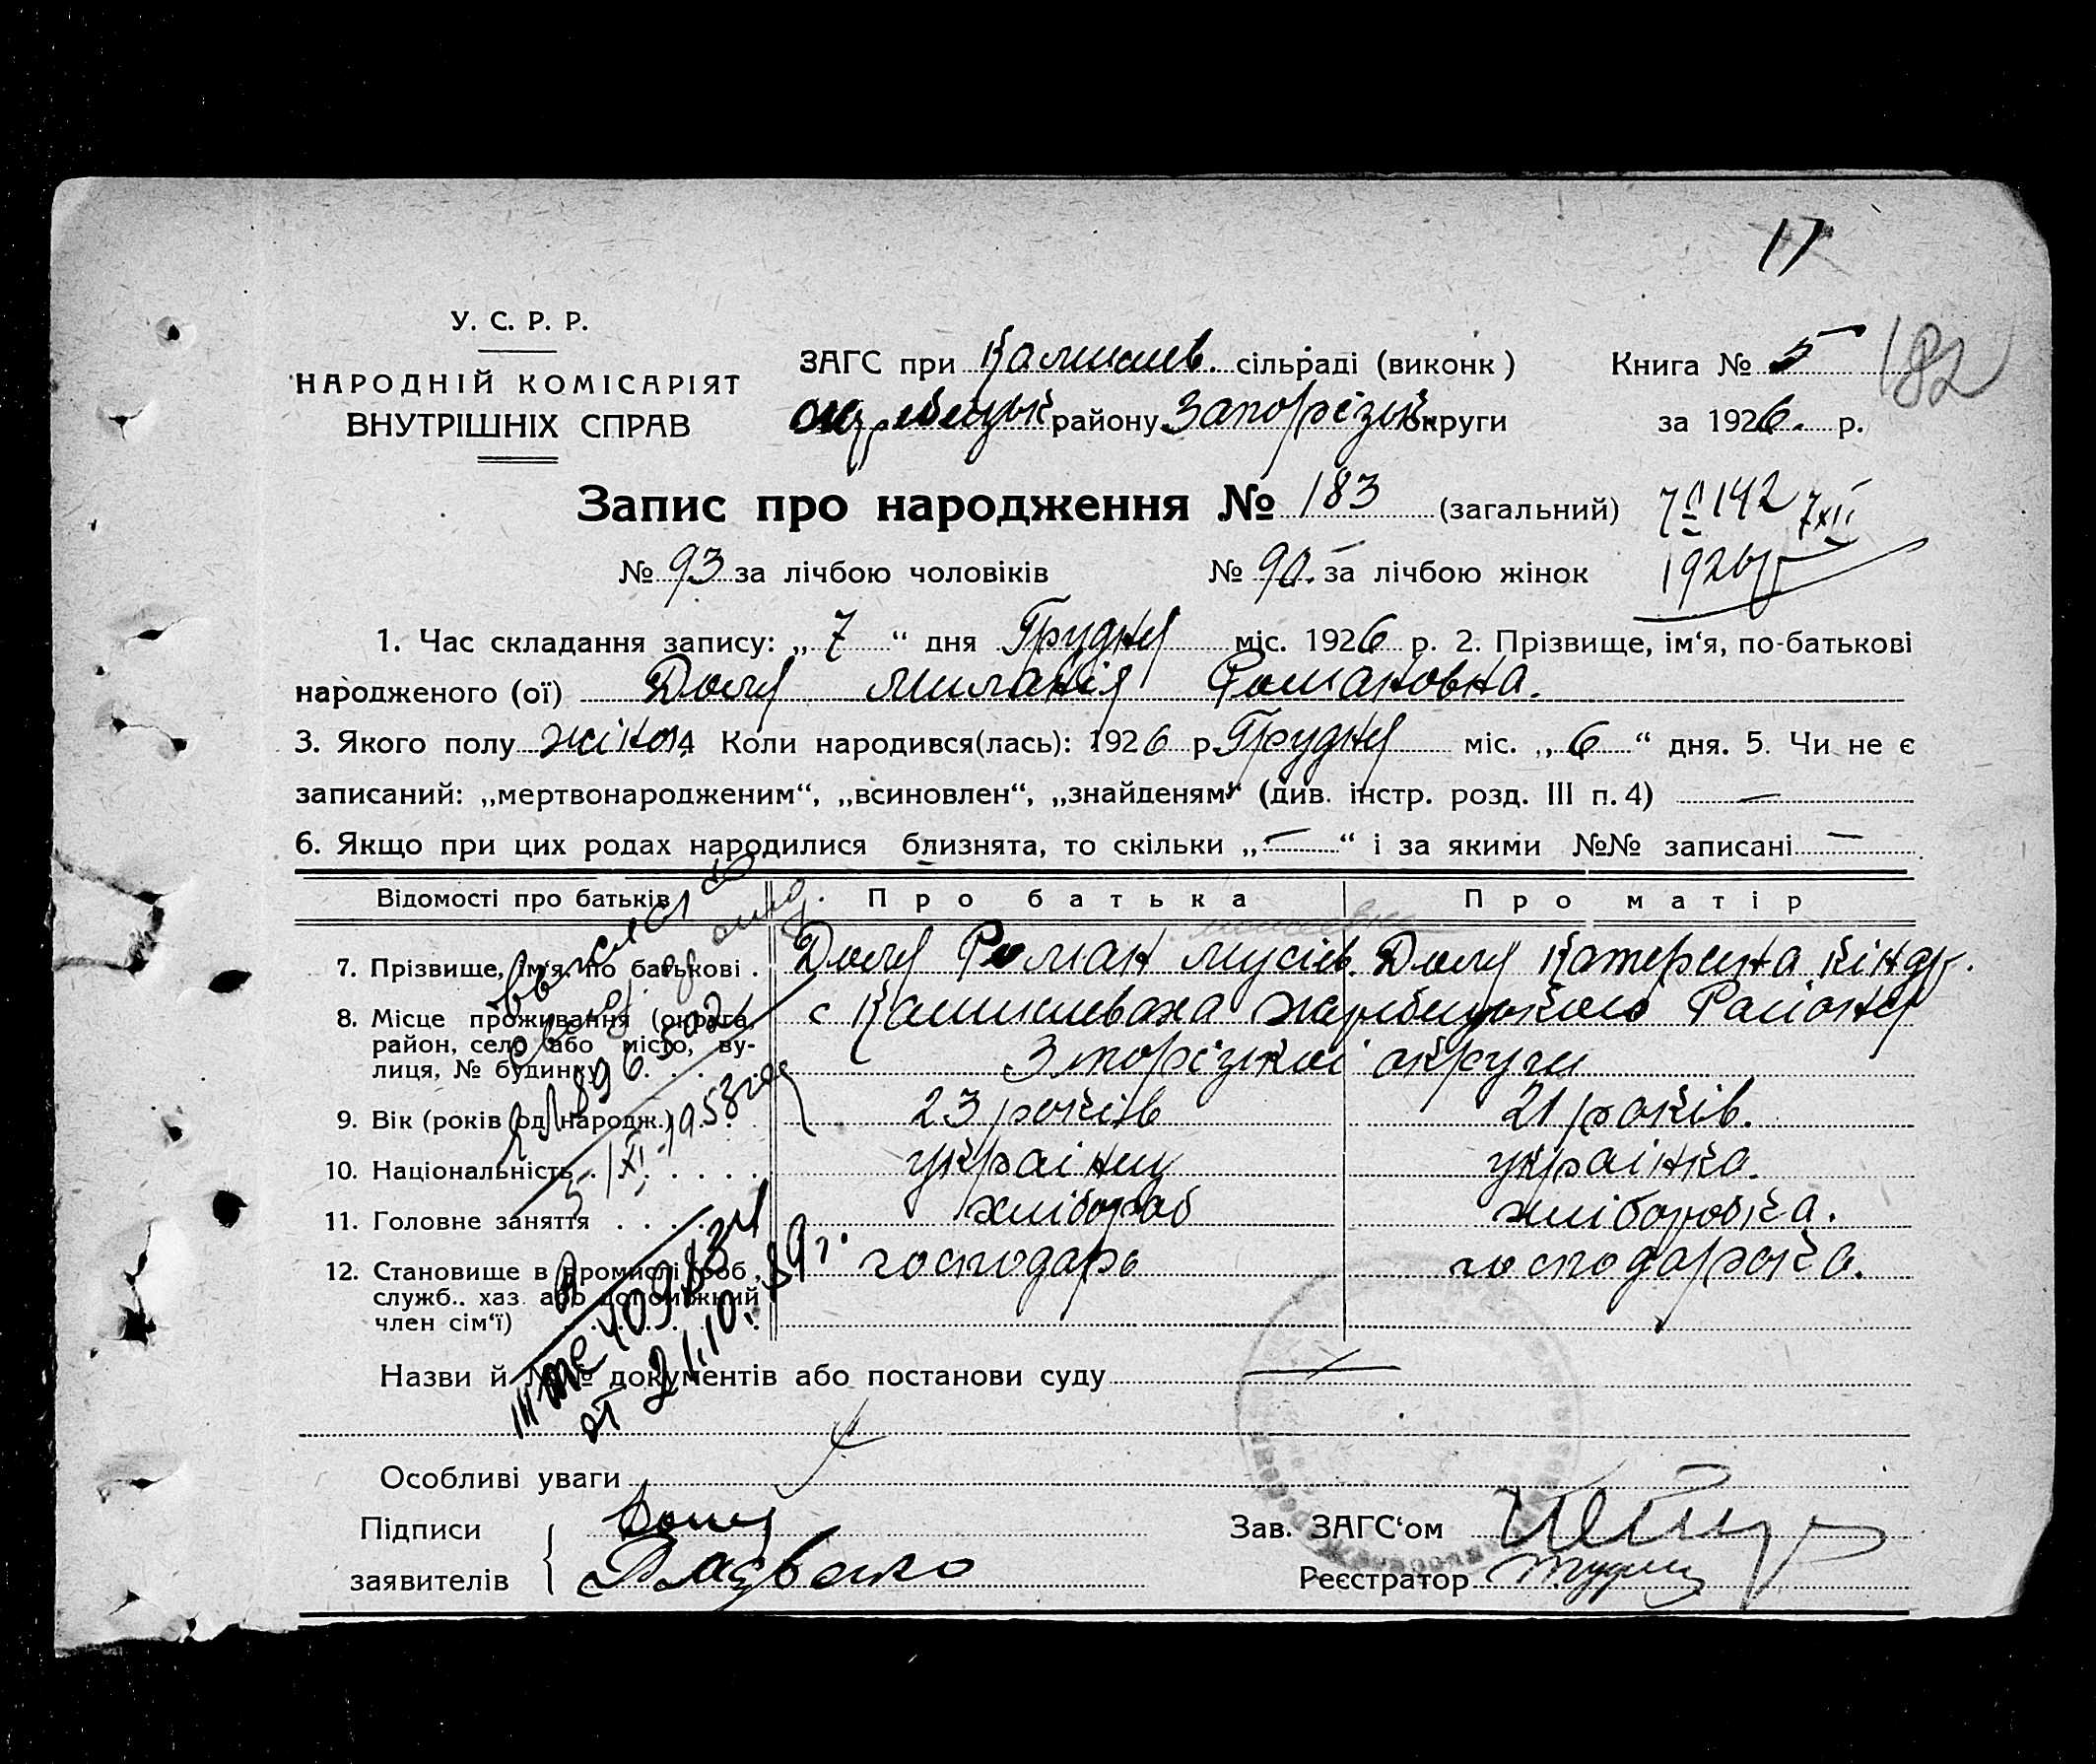 17
У. С. Р. Р.
НАРОДНІЙ КОМІСАРІЯТ
ВНУТРІШНІХ СПРАВ
ЗАГС при Камишев. сільраді (виконк)
району Запорізьк. округи
Книга № 5
182
за 1926. р.
Запис про народження № 183 (загальний)
№ 93 за лічбою чоловіків № 90. за лічбою жінок
1. Час складання запису: „ 7 “ дня Грудня міс. 1926 р. 2. Прізвище, ім‘я, по-батькові
народженого (ої) Доля Миланія Романовна.
3. Якого полу жіноч 4 Коли народився(лась): 1926 р. Грудня міс. „ 6 “ дня. 5. Чи не є
записаний: „мертвонародженим“, „всиновлен“, „знайденям“ (див. інстр. розд. III п. 4) —
6. Якщо при цих родах народилися близнята, то скільки „ — “ і за якими №№ записані —
Відомості про батьків Про батька Про матір
7. Прізвище, ім‘я, по батькові . Доля Роман Мусіев. Доля Катерина Кіндр.
8. Місце проживання (округа, район, село або місто, вулиця, № будинку) с Камишеваха Жеребецького Району
Запорізкоі округи
9. Вік (років од народж.) 23 років 21 років.
10. Національність українец українка.
11. Головне заняття хлібороб хліборобка.
12. Становище в промислі (роб., служб., хаз. або допоміжний член сім‘ї) господарь господарька.
Назви й №№ документів або постанови суду —
от 21.10.89 г.
Особливі уваги
Підписи Доля
заявителів
Зав. ЗАГС‘ом
Реєстратор